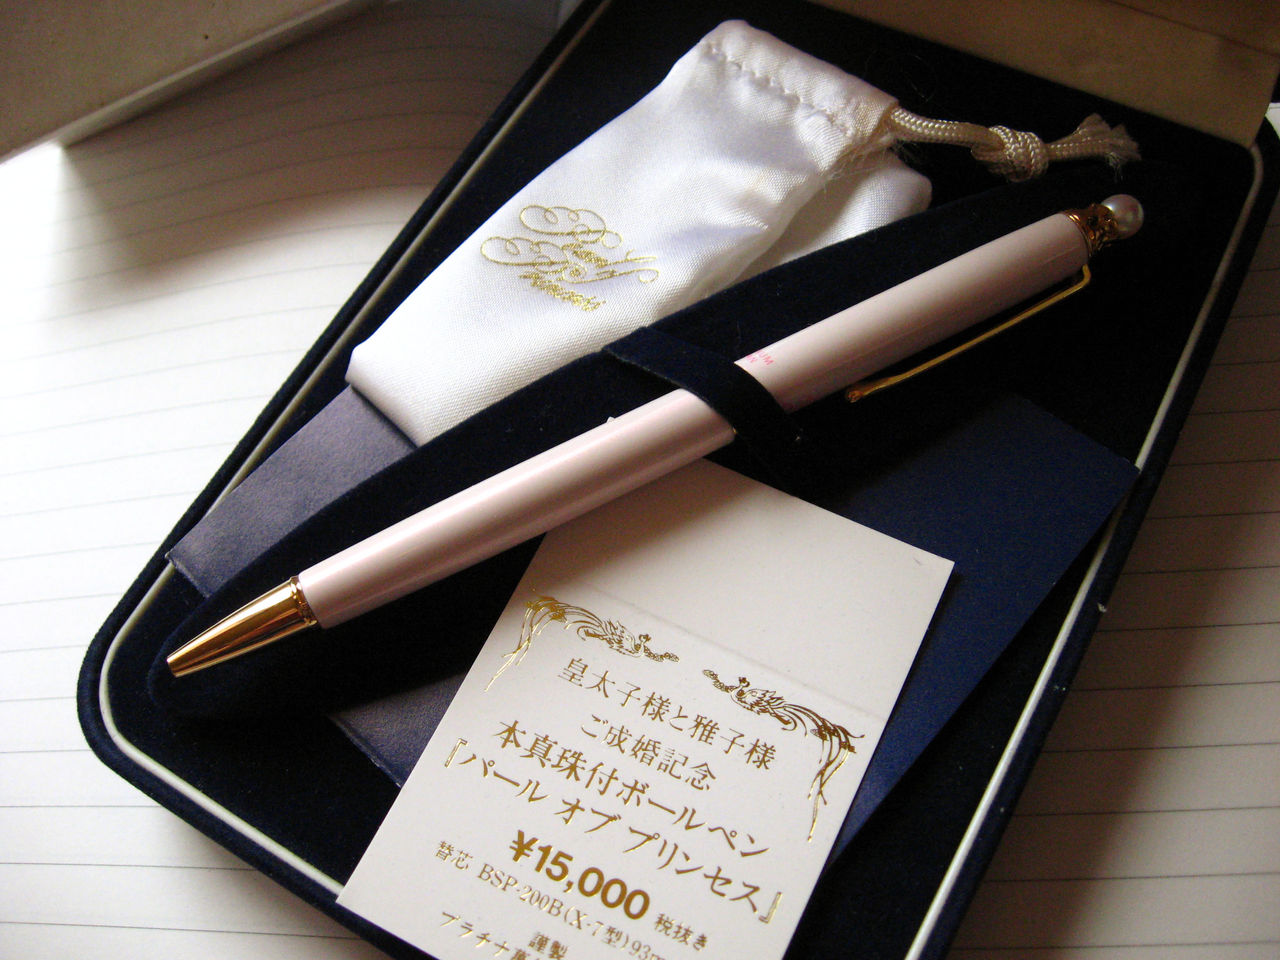 Princess
皇太子様と雅子様
ご成婚記念
本真珠付ボールペン
『パール オブ プリンセス』
¥15,000 税抜き
替芯 BSP-200B(X-7型)93m
謹製
プラチナ萬